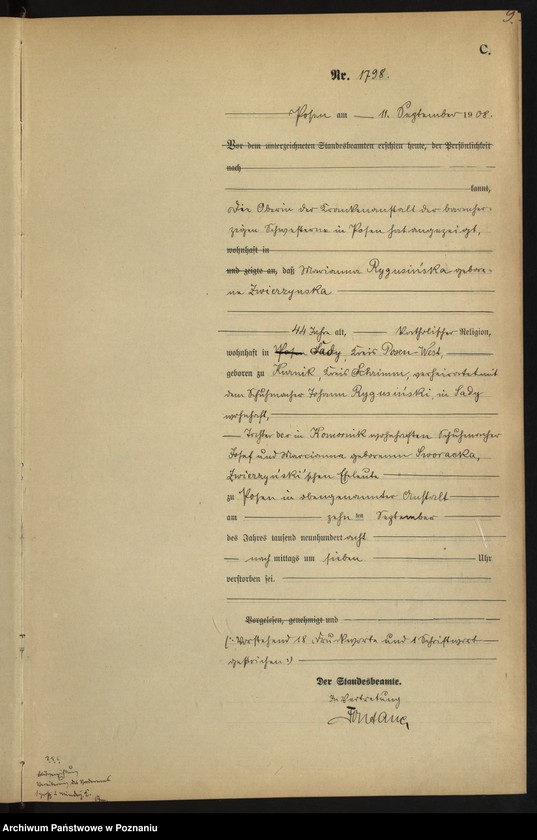 9.
C.
Nr. 1798.
Posen am 11. September 1908.
Vor dem unterzeichneten Standesbeamten erschien heute, der Persönlichkeit
nach
kannt,
Die Oberin der Krankenanstalt der barmher-
zigen Schwestern in Posen hat angezeigt,
wohnhaft in
und zeigte an, daß Marianna Rygusińska gebore-
ne Zwierzynska
44 Jahre alt, katholischer Religion,
wohnhaft in Posen Lady, Kreis Posen-West,
geboren zu Kurnik, Kreis Schrimm, verheiratet mit
dem Schuhmacher Johann Rygusiński, in Lady
wohnhaft,
Tochter der in Komornik wohnhaften Schuhmacher
Josef und Marcianna geborenen
Zwierzyński'schen Eheleute
zu Posen in obengenannter Anstalt
am zehn ten September
des Jahres tausend neunhundert acht
nach mittags um sieben Uhr
verstorben sei.
Vorgelesen, genehmigt und
(: Vorstehend 18 Druckworte und 1 Schriftwort
gestrichen :)
Der Standesbeamte.
In Vertretung
Archiwum Państwowe w Poznaniu